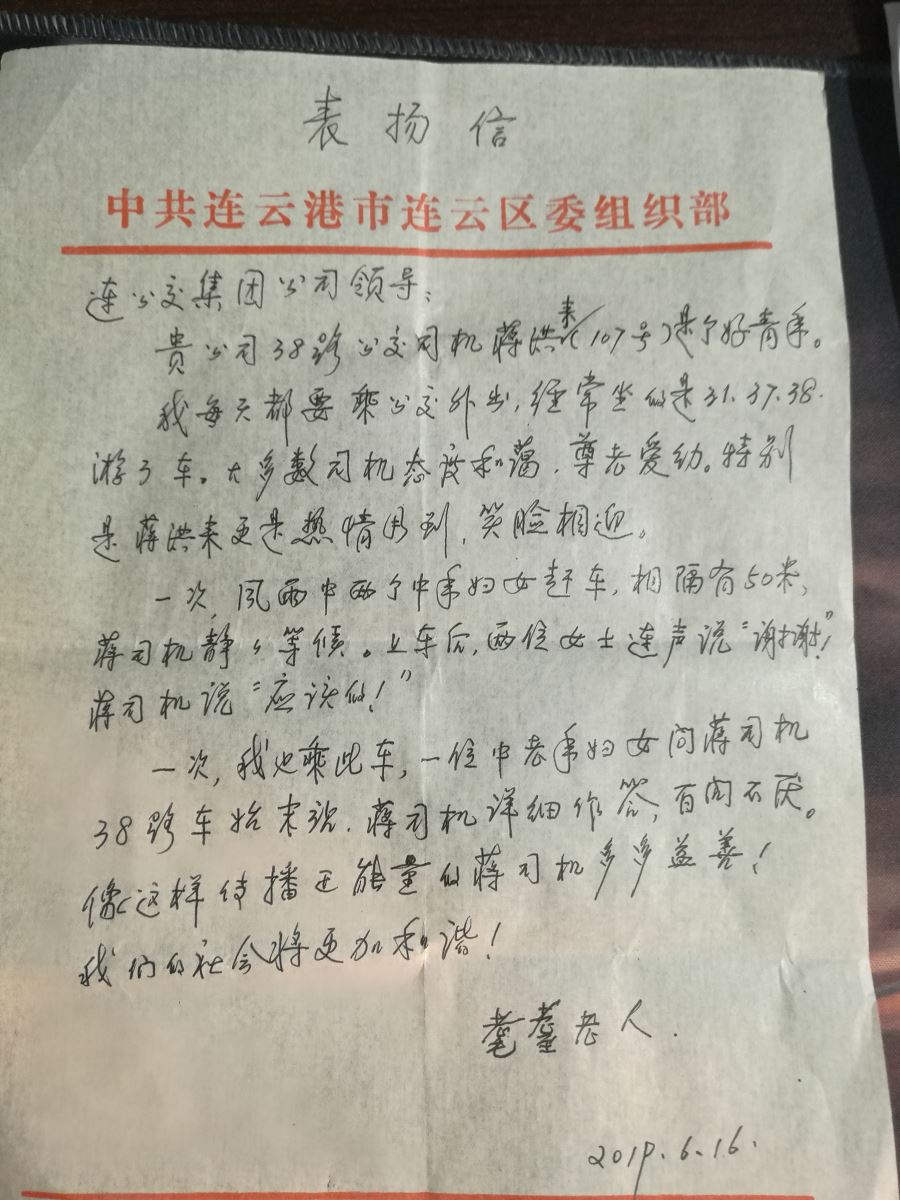 表扬信
中共连云港市连云区委组织部
连公交集团公司领导:
贵公司38路公交司机蒋洪来(107号)是个好青年。
我每天都要乘公交外出,经常坐的是31.37.38.
游3车。大多数司机态度和蔼,尊老爱幼。特别
是蒋洪来更是热情周到,笑脸相迎。
一次,风雨中两个中年妇女赶车,相隔有50米,
蒋司机静々等候。上车后,两位女士连声说“谢谢!”
蒋司机说“应该的!”
一次,我也乘此车,一位中老年妇女问蒋司机
38路车始末站.蒋司机详细作答,百问不厌。
像这样传播正能量的蒋司机多多益善!
我们的社会将更加和谐!
耄耋老人.
2019.6.16.